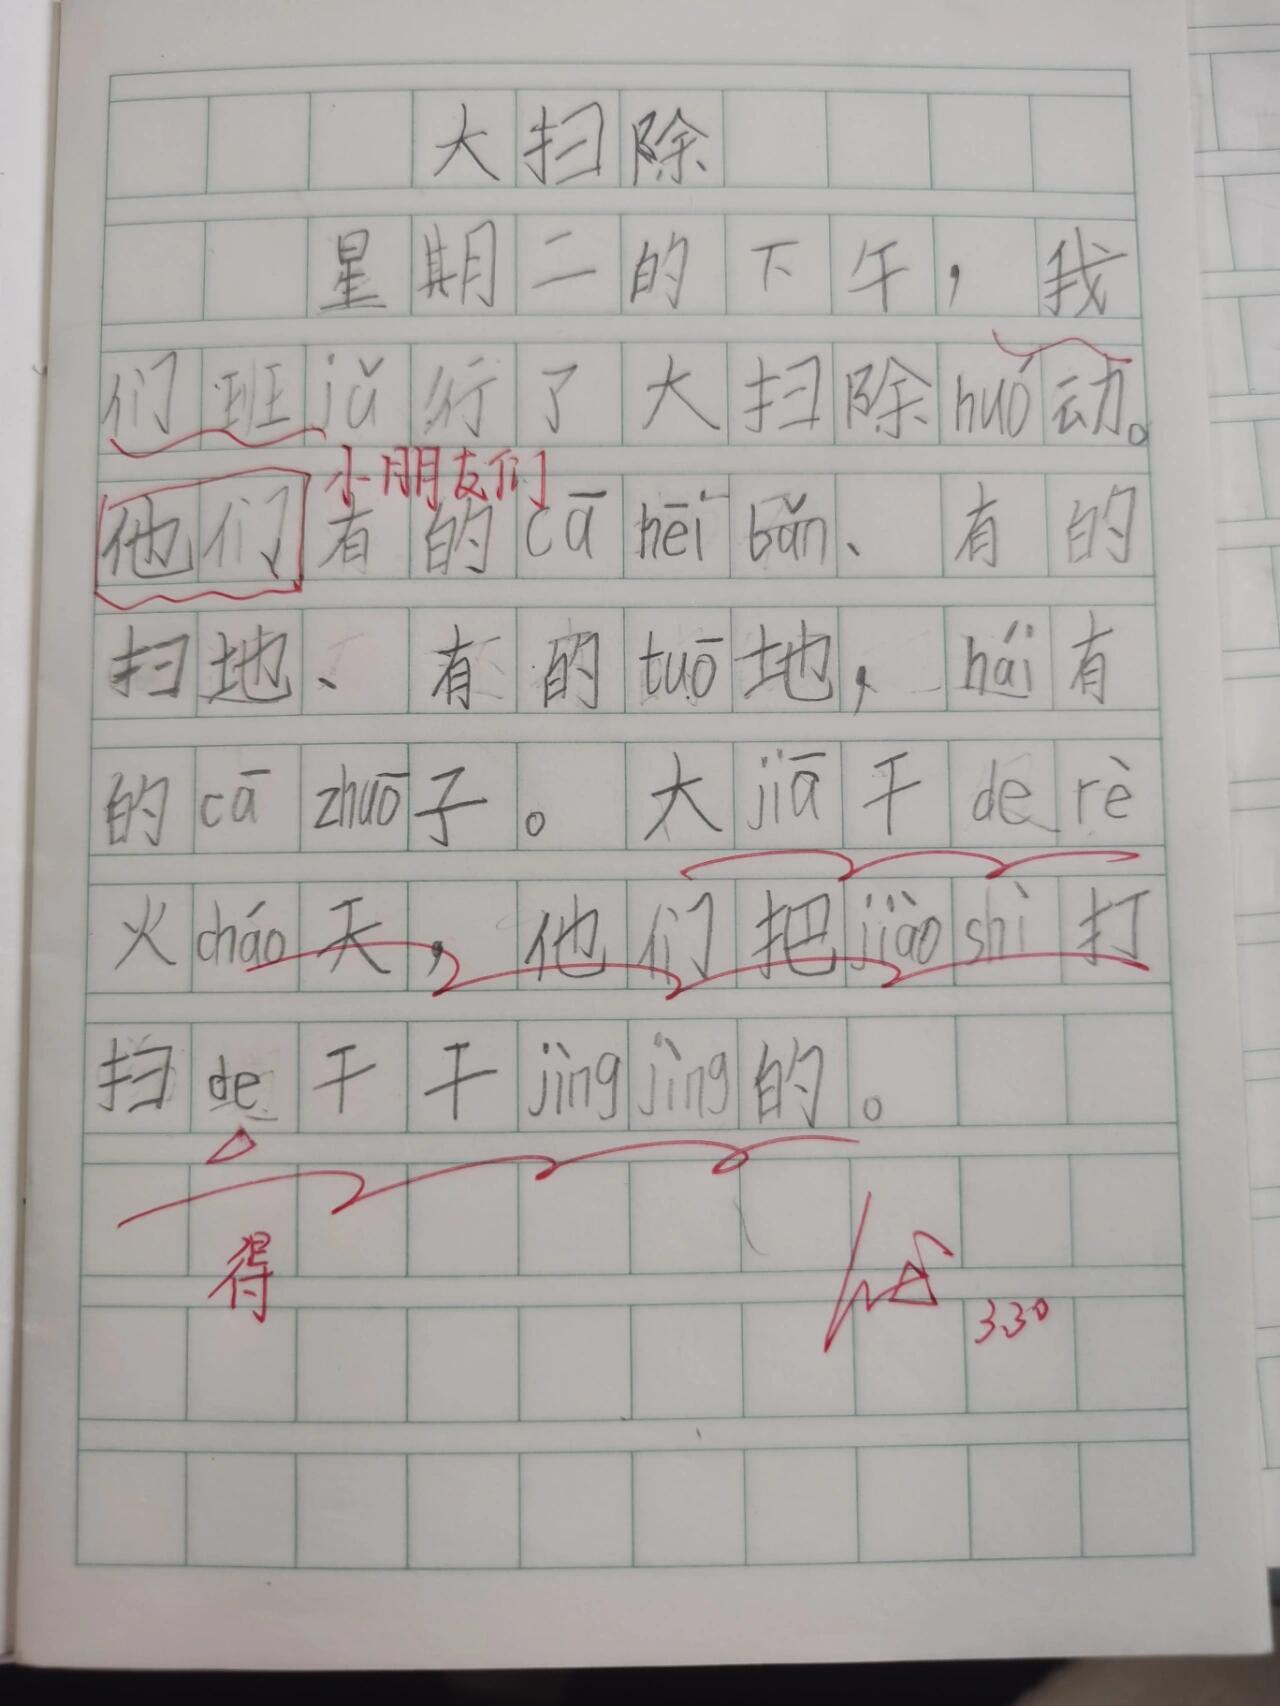 大扫除
星期二的下午，我
们班jǔ行了大扫除huó动。
小朋友们
他们有的cā hēi bǎn、有的
扫地、有的tuō地，hái有
的cā zhuō子。大jiā干de rè
火cháo天，他们把jiào shì打
扫de干干jìng jìng的。
得
3.30